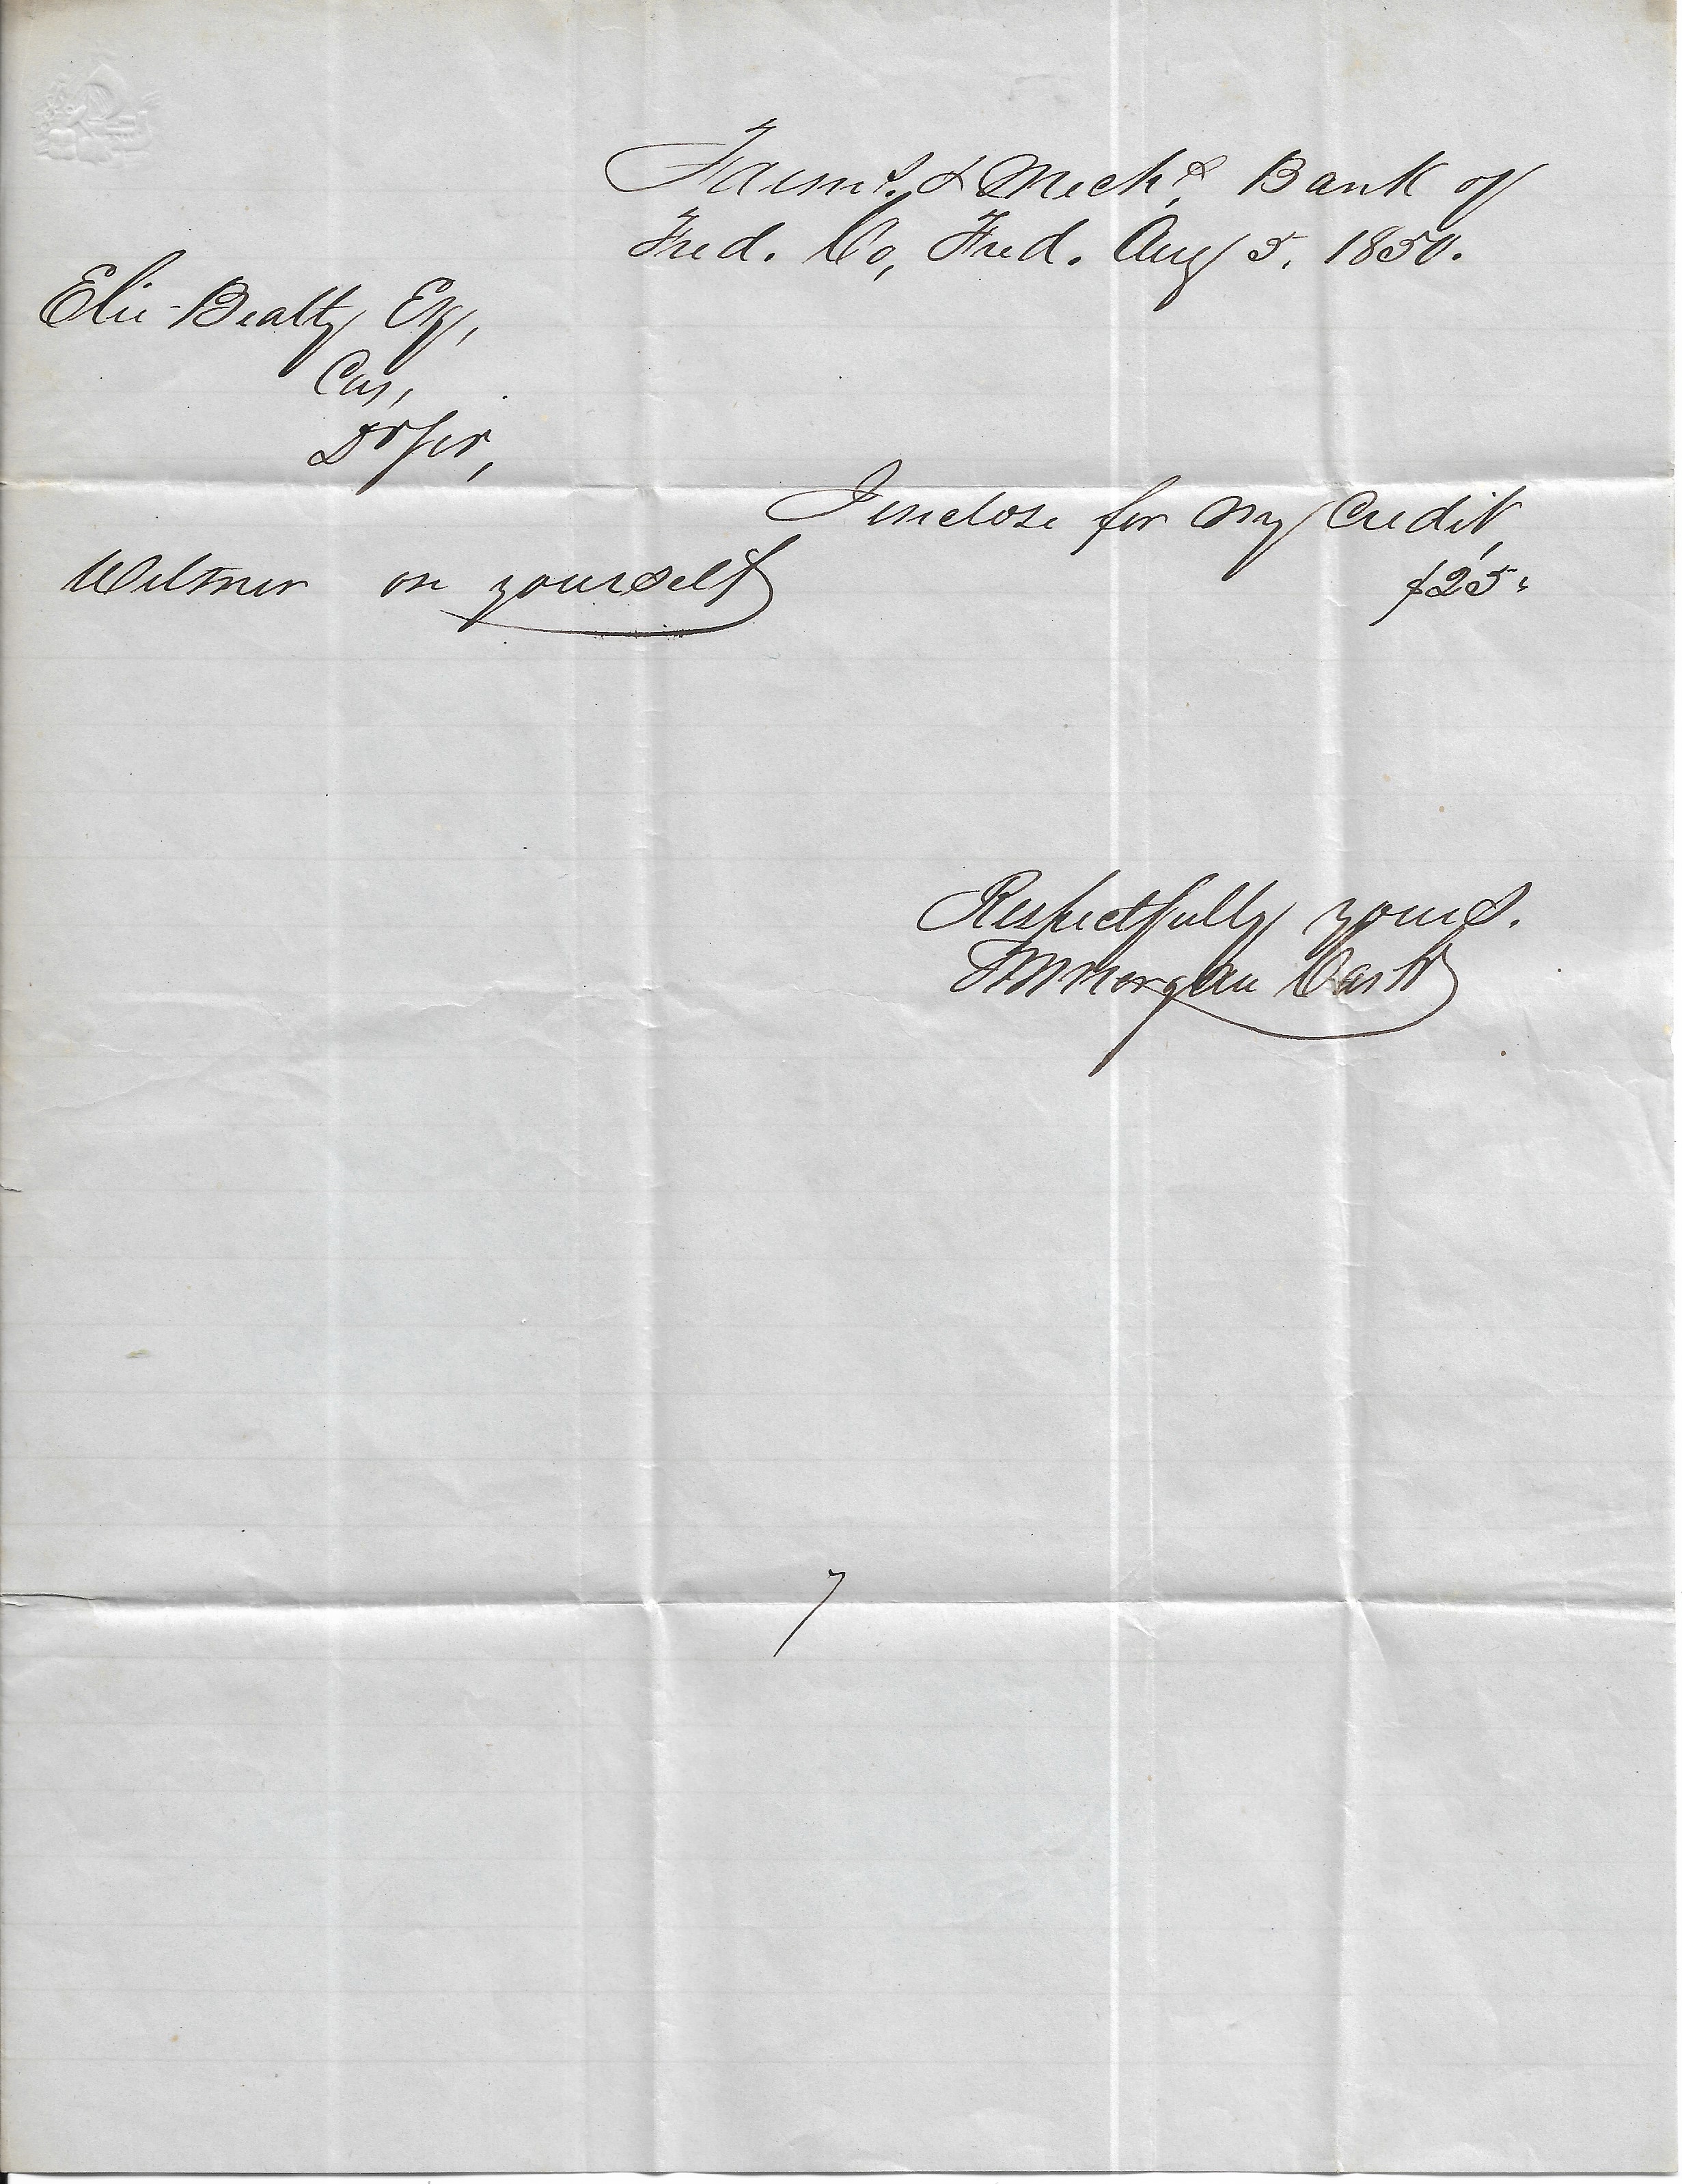 Farmrs. & Mechs. Bank of
Fred. Co, Fred. Aug 5. 1850.
Elie Beatty Esq,
Cas,
Dr Sir,
I enclose for my Credit,
on yourself $25.
Respectfully yours.
Morgan Cash
7